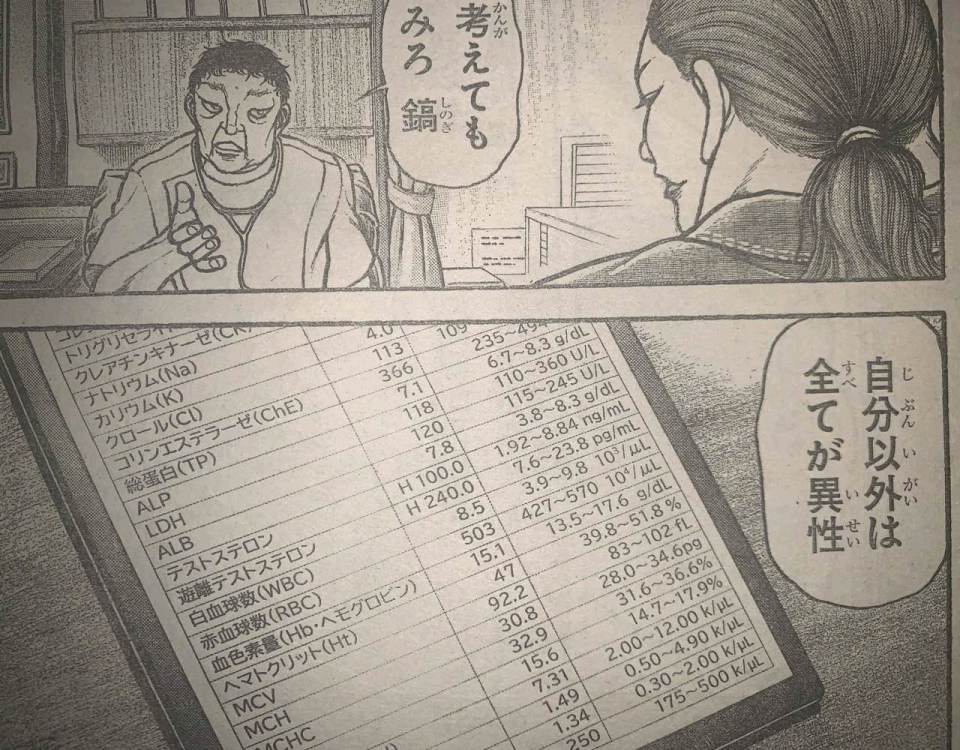 考えても
みろ 鎬
自分以外は
全てが異性
クレアチンキナーゼ(CK)
ナトリウム(Na)
カリウム(K) 4.0
クロール(Cl) 113 109
コリンエステラーゼ(ChE) 366
総蛋白(TP) 7.1 6.7~8.3 g/dL
ALP 118 110~360 U/L
LDH 120 115~245 U/L
ALB 7.8 3.8~8.3 g/dL
テストステロン H 100.0 1.92~8.84 ng/mL
遊離テストステロン H 240.0 7.6~23.8 pg/mL
白血球数(WBC) 8.5 3.9~9.8 10³/μL
赤血球数(RBC) 503 427~570 10⁴/μL
血色素量(Hb・ヘモグロビン) 15.1 13.5~17.6 g/dL
ヘマトクリット(Ht) 47 39.8~51.8 %
MCV 92.2 83~102 fL
MCH 30.8 28.0~34.6pg
MCHC 32.9 31.6~36.6%
15.6 14.7~17.9%
7.31 2.00~12.00 k/μL
1.49 0.50~4.90 k/μL
1.34 0.30~2.00 k/μL
250 175~500 k/μL